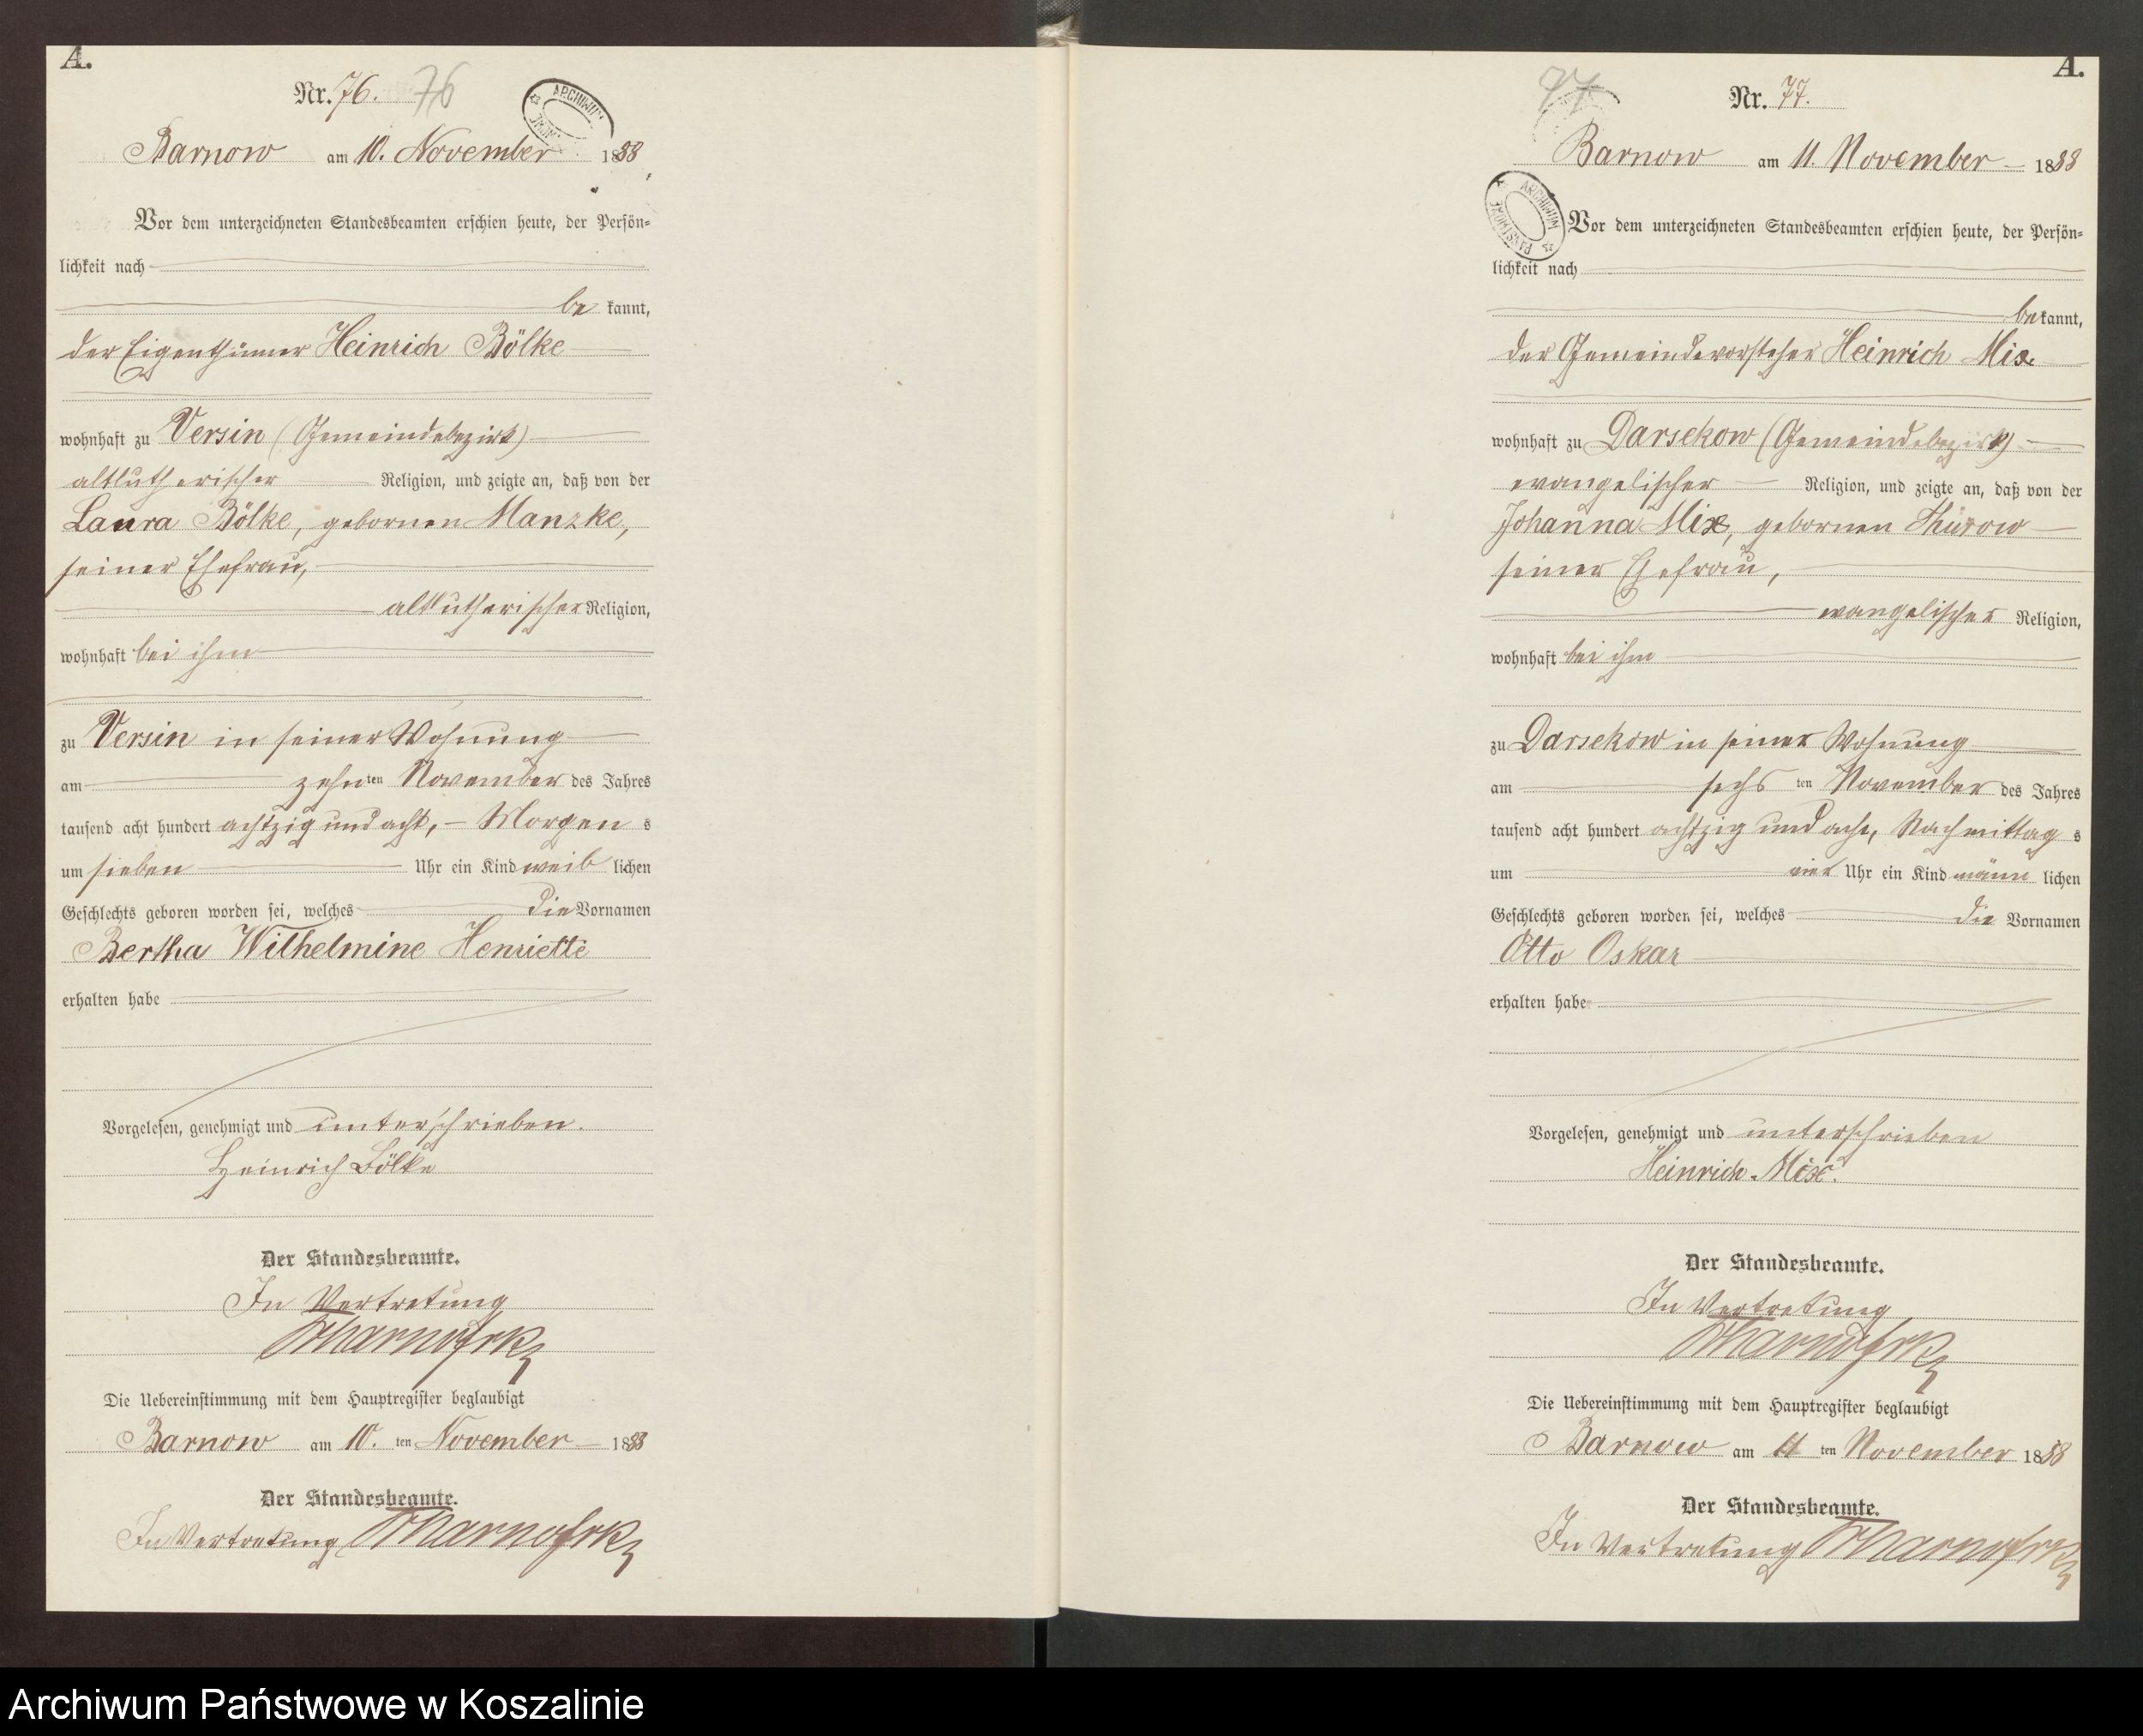 A.
Nr. 76. 76
ARCHIWUM
Barnow am 10. November 1888
Vor dem unterzeichneten Standesbeamten erschien heute, der Persön=
lichkeit nach
be kannt,
der Eigenthümer Heinrich Bölke
wohnhaft zu Versin (Gemeindebezirk)
altlutherischer Religion, und zeigte an, daß von der
Laura Bölke, gebornen Manzke,
seiner Ehefrau,
altlutherischer Religion,
wohnhaft bei ihm
zu Versin in seiner Wohnung
am zehn ten November des Jahres
tausend acht hundert achtzig und acht, – Morgen s
um sieben Uhr ein Kind weib lichen
Geschlechts geboren worden sei, welches die Vornamen
Bertha Wilhelmine Henriette
erhalten habe
Vorgelesen, genehmigt und unterschrieben.
Heinrich Bölke
Der Standesbeamte.
In Vertretung
Die Uebereinstimmung mit dem Hauptregister beglaubigt
Barnow am 10. ten November 1888
Der Standesbeamte.
In Vertretung
A.
77 Nr. 77.
Barnow am 11 November 1888
ARCHIWUM PAŃSTWOWE
Vor dem unterzeichneten Standesbeamten erschien heute, der Persön=
lichkeit nach
be kannt,
der Gemeindevorsteher Heinrich Mix
wohnhaft zu Darsekow (Gemeindebezirk)
evangelischer Religion, und zeigte an, daß von der
Johanna Mix, gebornen Thürow
seiner Ehefrau,
evangelischer Religion,
wohnhaft bei ihm
zu Darsekow in seiner Wohnung
am sechs ten November des Jahres
tausend acht hundert achtzig und acht, Nachmittag s
um vier Uhr ein Kind männ lichen
Geschlechts geboren worden sei, welches die Vornamen
Otto Oskar
erhalten habe
Vorgelesen, genehmigt und unterschrieben
Heinrich Mix.
Der Standesbeamte.
In Vertretung
Die Uebereinstimmung mit dem Hauptregister beglaubigt
Barnow am 11 ten November 1888
Der Standesbeamte.
In Vertretung
Archiwum Państwowe w Koszalinie